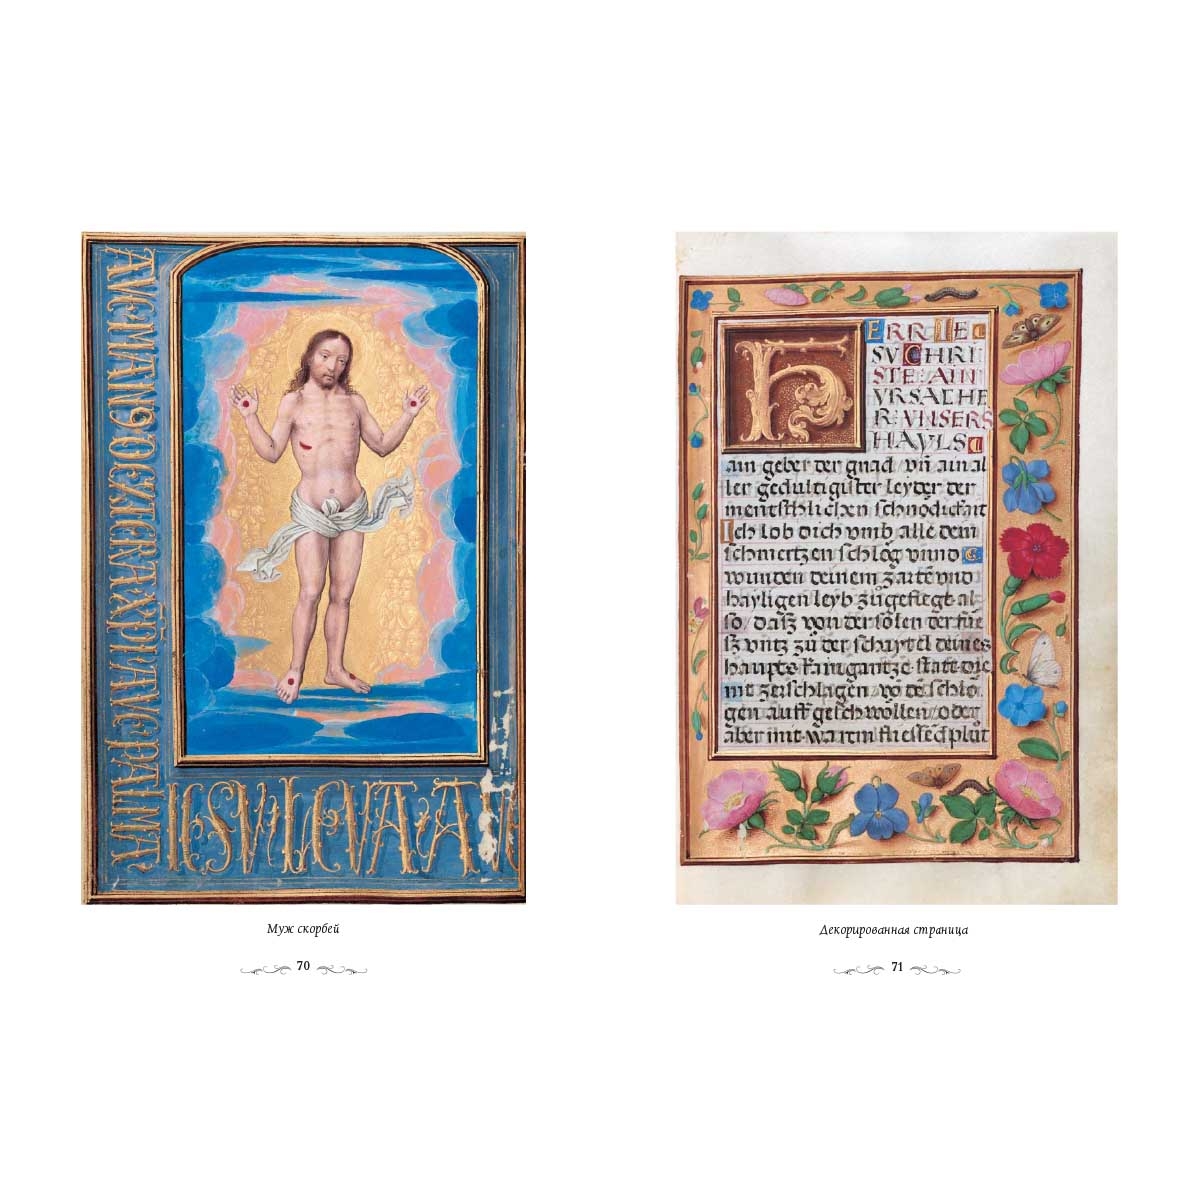 AVE·MAN9·DEXTERA·XPI·AVE·PALMA
IESV·LEVA·AV
HERR IE
SV CHRI
STE: AIN
VRSACHE
R·VNSERS
HAYLS
ain geber der gnad / vñ ain al
ler gedultigister leyder der
mentschlichen schnödickait
Ich lob dich vmb alle dein
schmertzen schlög vnnd
wunden deinem zartē vnd
hayligen leyb zůgefiegt al
so / dasz von der solen der füe
sz vntz zů der schaytel deines
haupts kain gantze statt die
nit zerschlagen / vō dē schlö
gen auff geschwollen / oder
aber mit warm fliessēd plůt
Муж скорбей
70
Декорированная страница
71